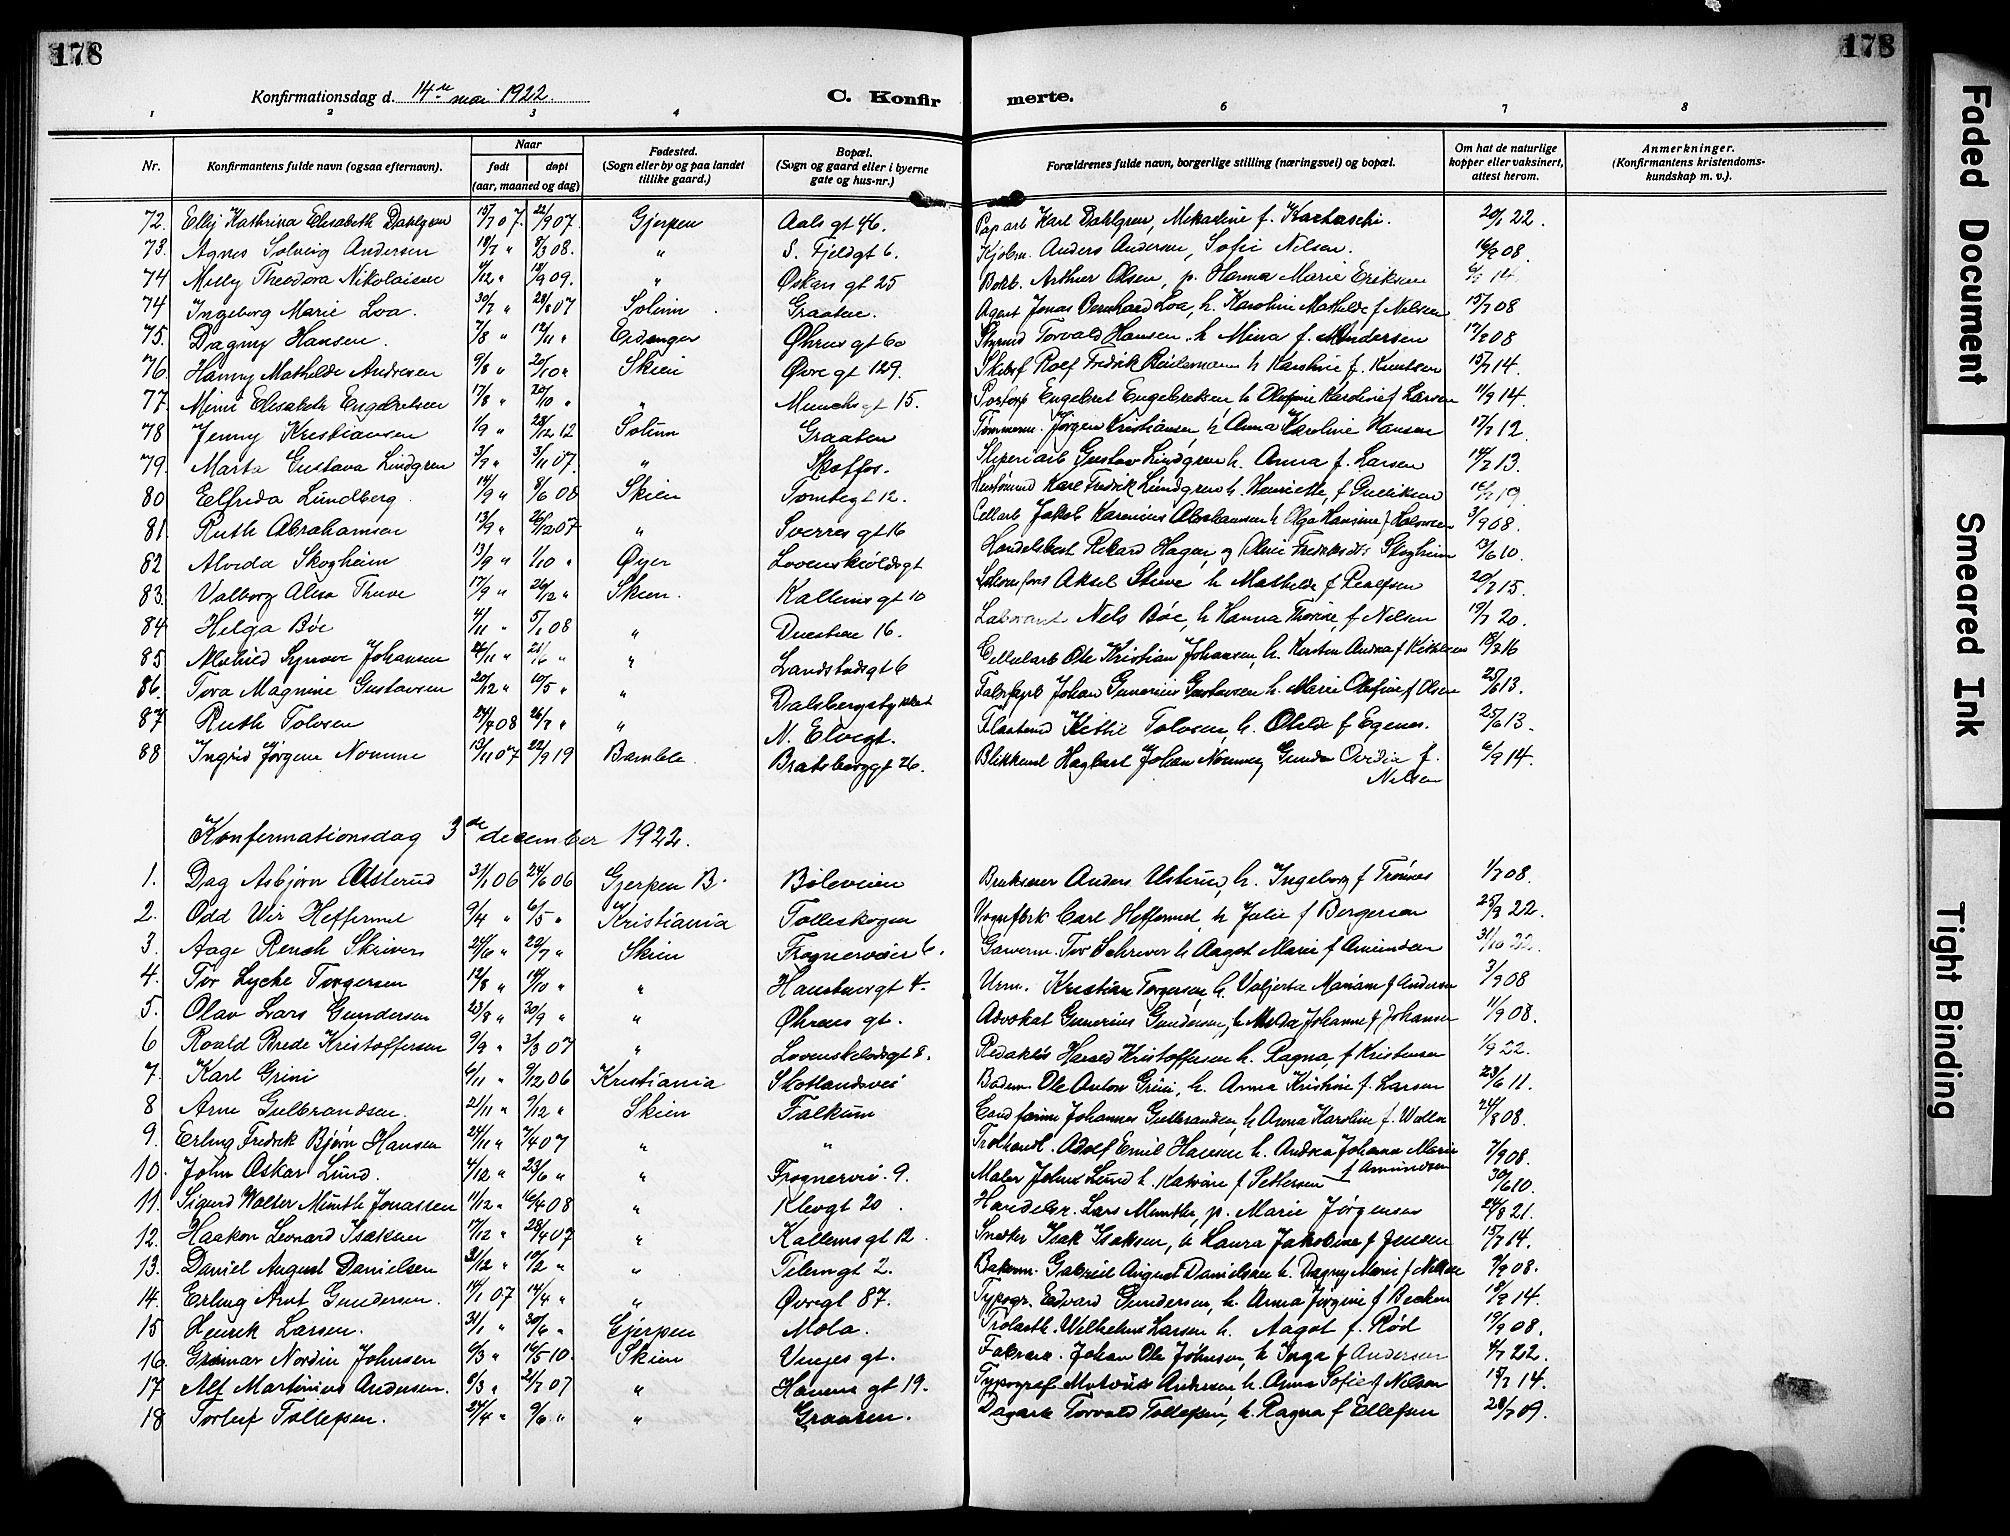 178
178
Konfirmationsdag d. 14de mai 1922.
C. Konfir
merte.
1 2 3 4 5 6 7 8
Nr. Konfirmantens fulde navn (ogsaa efternavn). Naar født døpt (aar, maaned og dag) Fødested. (Sogn eller by og paa landet tillike gaard.) Bopæl. (Sogn og gaard eller i byerne gate og hus-nr.) Forældrenes fulde navn, borgerlige stilling (næringsvei) og bopæl. Om hat de naturlige kopper eller vaksinert, attest herom. Anmerkninger. (Konfirmantens kristendoms-kundskap m. v.).
72. Elly Kathrina Elisabeth Dahlgren 15/7 07. 22/9 07. Gjerpen Aals gt 46. Paparb Karl Dahlgren, 20/1 22.
73. Agnes Solveig Andersen 18/7 " 8/3 08. " S. Fjeldgt 6. Kjøbm. Anders Andersen, Sofie Nelsen. 16/9 08.
74 Milly Theodora Nikolaisen 4/12 " 19/9 09. " Oskars gt 25 Bokb. Arthur Olsen, p. Hanna Marie Eriksen 6/9 14.
74 Ingeborg Marie Loa. 30/7 " 28/8 07 Solum Graaten. Agent Jonas Bernhard Loa, h. Karoline Mathilde f Nelsen 15/7 08
75. Dagny Hansen. 7/8 " 12/11 " Eidanger Øhrns gt 60 Styrmd Torvald Hansen h. Mina f. Andersen 17/9 08
76. Hanny Mathilde Andresen 9/8 " 20/10 " Skien Øvre gt 129. Rolf Fredrik h Karoline f. Knutsen 15/7 14.
77. Mimi Elisabeth Engebretsen 17/8 " 20/10 " " Munchs gt 15. Engebret Engebretsen h Olefine Karoline f Larsen 11/9 14.
78 Jenny Kristiansen 1/9 " 28/12 12 Solum Graaten Tømmerm. Jørgen Kristiansen h Anna Karoline Hansen 17/7 12.
79. Marta Gustava Lindgren 3/9 " 3/11 07. " Skotfos. Sliperiarb Gustav Lindgren h. Anna f. Larsen 14/7 13.
80 Elfrida Lundberg. 14/9 " 8/6 08 Skien Tomtegt 12. Karl Fredrik Lundgren h. Henriette f Gulliksen 19
81. Ruth Abrahamsen 13/9 " 26/12 07 " Sverres gt 16 Cellarb Jakob Karenius Abrahamsen h Olga Hansine f Halvorsen 3/9 08.
82 Alvida Skogheim 13/9 " 1/10 " Øyer Lovenskioldsgt Handelsbest Rikard Hagen, og Skogheim 13/6 10.
83. Valborg Alisa Thuve 17/9 " 26/12 " Skien. Kallems gt 10 Aksel h Mathilde f 20/7 15.
84 Helga Bøe 4/11 " 5/1 08 " Duestien 16. Laborant Nels Bøe, h Hanna Thorine, f Nelsen 19/7 20.
85. Synove Johansen 26/11 " 21/6 " " Landstadsgt 6 Cellularb Ole Kristian Johansen, h. Kirsten Andrea f 18/9 16
86. Tora Magnine Gustavsen 20/12 " 10/5 " " Dalsbergstykket Johan Gunerius Gustavsen h. Marie Olefine f Olsen 25/6 13.
87 Ruth Tolvsen 24/4 08 26/7 " " N. Elvegt. Kittil Tolvsen, h. f Egenes. 25/6 13.
88 Ingrid Jørgine Nomme 13/11 07 22/9 19 Bamble Bratsberggt 26. Blikkensl Hagbart Johan Nomme, Gunda Ovidia f. 6/9 14.
Nelsen
Konfermationsdag 3de december 1922.
1. Dag Asbjørn Ulsterud 31/1 06 24/6 06 Gjerpen B. Bøleveien Brukseier Anders Ulsterud, h. Ingeborg f Trønnes 1/7 08.
2. Odd Wir Heffermel 9/4 " 6/5 " Kristiania Tolleskogen Vognfbrk Carl Heffermel, h Julie f Bergersen 25/9 22.
3. Aage Rench Skrivers 25/6 " 22/7 " Skien Frognerveier 6. Garverm. Tor Schriver h Aagot Marie f Amundsen 31/10 22.
4. Tor Lyche Torgersen 12/8 " 14/10 " " 4. Urm. Kristian Torgersen, h. Valjerta Mariane f Andersen 3/9 08
5. Olav Lars Gundersen 23/8 " 30/9 " " Øhrens gt. Advokat Gunerius Gundersen, h Johanne f Johansen 11/9 08.
6 Roald Brede Kristoffersen 9/9 " 3/3 07 " Lovenskioldsgt 8. Redaktør Harald Kristoffersen h. Ragna, f Kristensen 1/9 22.
7. Karl Grini 6/11 " 9/12 06 Kristiania Skotlandsvei Badem. Ole Anton Grini, h. Anna Kristine f. Larsen 23/6 11.
8 Arne Gulbrandsen. 21/11 " 9/12 " Skien Falkum Cand farm Johannes Gulbrandsen h Anna Karoline f. Wallen 24/8 08.
9. Erling Fredrik Bjørn Hansen 24/11 " 7/4 07 " " Trælhandl. Adolf Emil Hansen h. Andrea Johanna Marie 7/9 08.
f Amundsen
10. John Oskar Lund. 4/12 " 23/6 " " Frognervei. 9. Maler Johns Lund h. Katrine f Pettersen 30/6 10.
11. Sigurd Walter Munth Jonassen 11/12 " 16/4 08 " Klevgt 20 Handelsr. Lars Munthe, p. Marie Jørgensen 24/8 21.
12. Haakon Leonard Isaksen 17/12 " 28/4 07 " Kallems gt 12. Snekker Isak Isaksen, h Laura Jakobine f Jensen 15/7 14.
13. Daniel August Danielsen 31/12 " 10/2 " " Telemgt 2. Bakerm. Gabriel August Danielsen h. Dagny Marie f Nilsen 9/9 08.
14. Erling Arnt Gundersen. 14/1 07 14/4 " " Øvregt 87. Typogr. Edvard Gundersen, h. Anna Jørgine f Becken 18/9 14.
15 Henrik Larsen. 31/1 " 30/6 " Gjerpen Mæla. Wilhelms Larsen h. Aagot f. Rød 19/9 08.
16. Gunnar Nordin Johnsen 6/3 " 16/5 10. Skien Vinjes gt. Johan Ole Johnsen, h Inga f Andersen 4/7 22.
17 Alf Martinius Andersen. 8/3 " 21/7 07 " Hanens gt 19. Typograf. Andersen, h. Anna Sofie f Nilsen 15/7 14.
18 Torleif Tollefsen. 24/4 " 9/6 " " Graaten. Dagarb Torvald Tollefsen, h. Ragna f Ellefsen 28/7 09.
Faded Document
Smeared Ink
Tight Binding